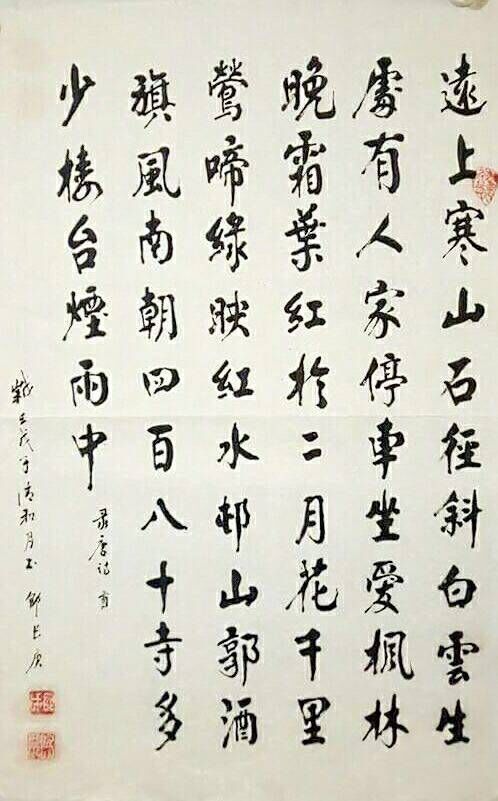 遠上寒山石徑斜白雲生
處有人家停車坐愛楓林
晚霜葉紅於二月花千里
鶯啼綠映紅水邨山郭酒
旗風南朝四百八十寺多
少樓台煙雨中
录唐诗
清和月